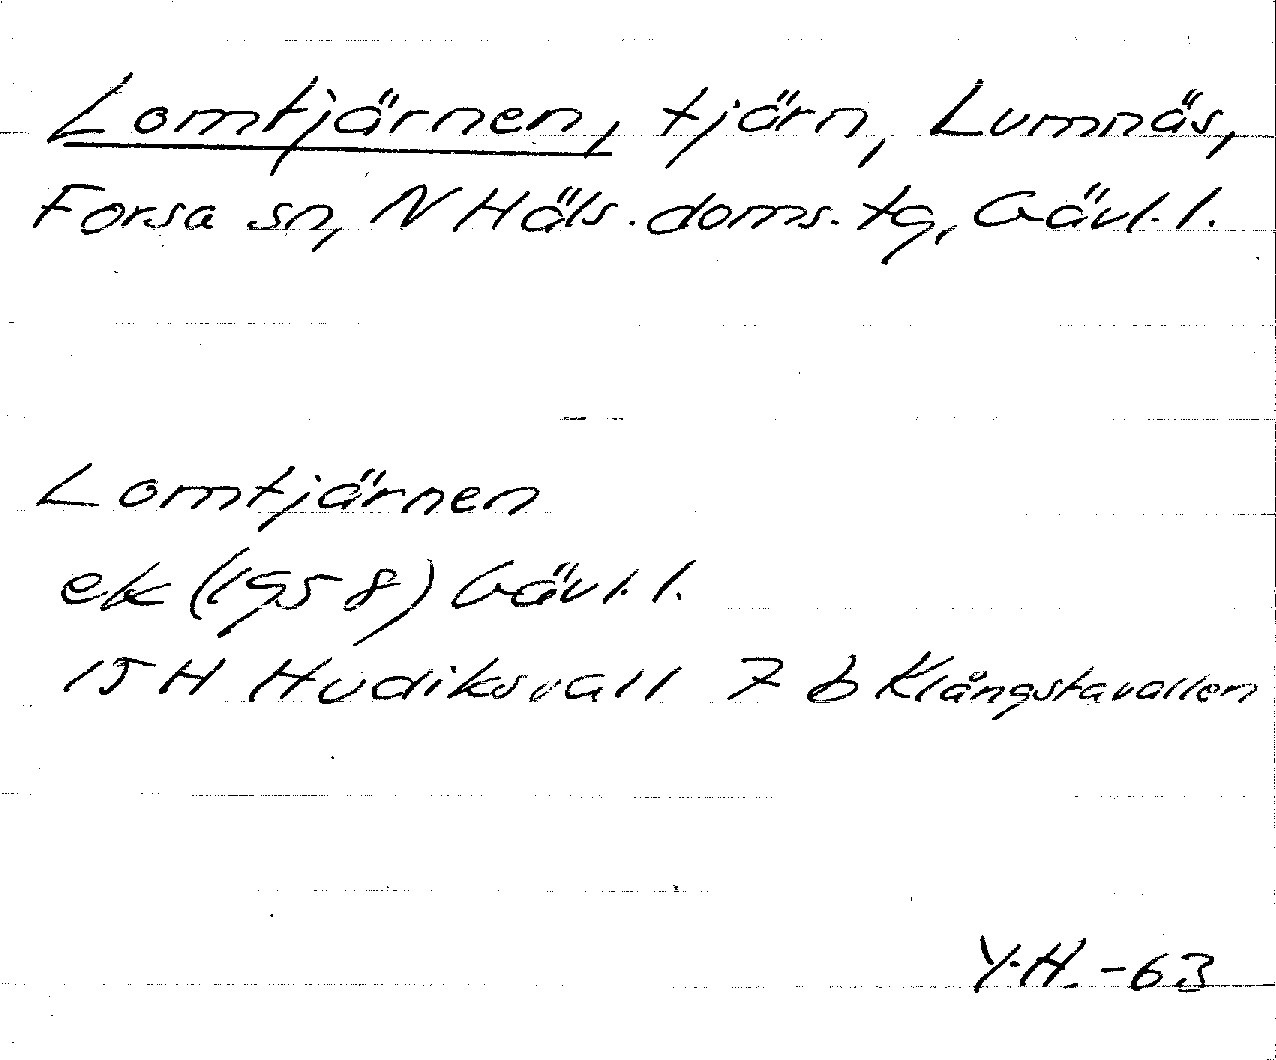 Lomtjärnen, tjärn, Lumnäs,
Forsa sn, N Häls. doms. tg, Gävl. l.
Lomtjärnen
ek (1958) Gävl. l.
15 H Hudiksvall 7 b Klångstavallen
Y.H. -63